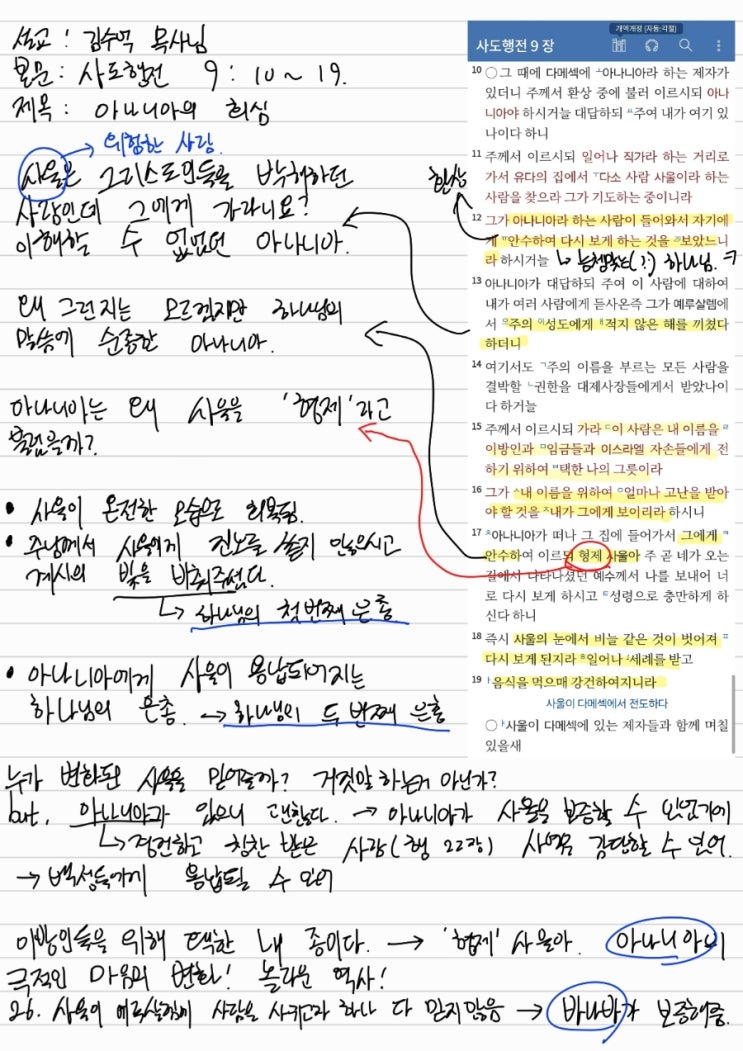 설교 : 김수억 목사님
본문 : 사도행전 9 : 10 ~ 19.
제목 : 아나니아의 회심
위험한 사람.
사울은 그리스도인들을 박해하던
사람인데 그에게 가라니요?
이해할 수 없었던 아나니아.
왜 그런지는 모르겠지만 하나님의
말씀에 순종한 아나니아.
아나니아는 왜 사울을 '형제'라고
불렀을까?
• 사울이 온전한 모습으로 회복됨.
• 주님께서 사울에게 진노를 쏟지 않으시고
계시의 빛을 비춰주셨다.
↳ 하나님의 첫번째 은총
• 아나니아에게 사울이 용납되어지는
하나님의 은총. → 하나님의 두 번째 은총
개역개정 [자동:각절]
사도행전 9 장
10 ○그 때에 다메섹에 ㅗ아나니아라 하는 제자가
있더니 주께서 환상 중에 불러 이르시되 아나
니아야 하시거늘 대답하되 주여 내가 여기 있
나이다 하니
11 주께서 이르시되 일어나 직가라 하는 거리로
가서 유다의 집에서 ㅜ다소 사람 사울이라 하는
사람을 찾으라 그가 기도하는 중이니라
환상
12 그가 아나니아라 하는 사람이 들어와서 자기에
게 안수하여 다시 보게 하는 것을 보았느니
라 하시거늘
하나님. ㅋ
13 아나니아가 대답하되 주여 이 사람에 대하여
내가 여러 사람에게 듣사온즉 그가 예루살렘에
서 주의 성도에게 적지 않은 해를 끼쳤다
하더니
14 여기서도 ㄱ주의 이름을 부르는 모든 사람을
결박할 ㄴ권한을 대제사장들에게서 받았나이
다 하거늘
15 주께서 이르시되 가라 ㄷ이 사람은 내 이름을
이방인과 ㅁ임금들과 이스라엘 자손들에게 전
하기 위하여 택한 나의 그릇이라
16 그가 ㅅ내 이름을 위하여 ㅇ얼마나 고난을 받아
야 할 것을 ㅈ내가 그에게 보이리라 하시니
17 아나니아가 떠나 그 집에 들어가서 그에게
안수하여 이르되 형제 사울아 주 곧 네가 오는
길에서 나타나셨던 예수께서 나를 보내어 너
로 다시 보게 하시고 ㅌ성령으로 충만하게 하
신다 하니
18 즉시 사울의 눈에서 비늘 같은 것이 벗어져
다시 보게 된지라 일어나 세례를 받고
19 음식을 먹으매 강건하여지니라
사울이 다메섹에서 전도하다
○ㅏ사울이 다메섹에 있는 제자들과 함께 며칠
있을새
누가 변화된 사울을 믿어줄까? 거짓말 하는거 아닌가?
but, 아나니아가 있으니 괜찮다. → 아나니아가 사울을 보증할 수 있었기에
↳ 경건하고 칭찬 받은 사람 ( 행 22장 ) 사역을 감당할 수 있어.
→ 백성들에게 용납될 수 있어
이방인들을 위해 택한 내 종이다. → '형제' 사울아. 아나니아의
극적인 마음의 변화! 놀라운 역사!
26. 사울이 예루살렘에 사람을 사귀고자 하나 다 믿지않음 → 바나바가 보증해줌.